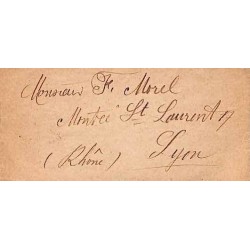 Monsieur F. Morel
Montée St Laurent 17
Lyon
(Rhône)